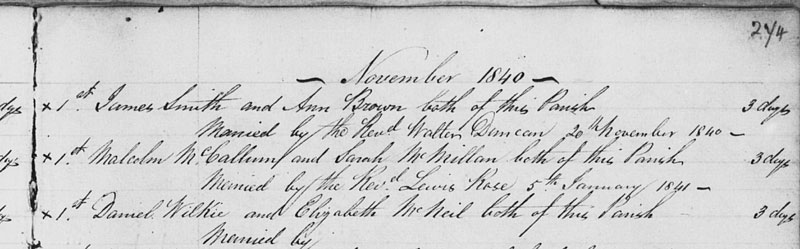 274
— November 1840 —
dys x 1st James Smith and Ann Brown both of this Parish 3 dys
Married by the Revd Walter Duncan 20th November 1840 —
dys x 1st Malcolm McCallum and Sarah McMillan both of this Parish 3 dys
Married by the Revd Lewis Rose 5th January 1841 —
dys x 1st Daniel Wilkie and Elizabeth McNeil both of this Parish 3 dys
Married by